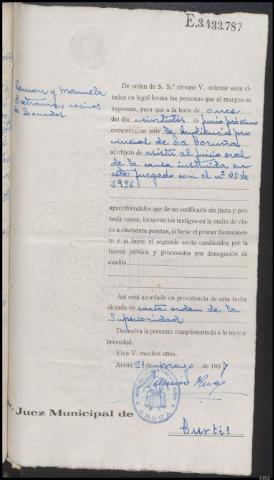 E.3.433.787
Ramon y Manuela
vecinos
De orden de S. S.ª sírvase V. ordenar sean ci-
tadas en legal forma las personas que al margen se
expresan, para que a la hora de once
del día veintidos de junio próximo
comparezcan ante la Audiencia pro
vincial de La Coruña
al objeto de asistir al juicio oral
de la causa instruida en
este juzgado con el nº 40 de
1936
apercibiéndoles que de no verificarlo sin justa y pro-
bada causa, incurren los testigos en la multa de cinco
a cincuenta pesetas, si fuese el primer llamamiento
y si fuese el segundo serán conducidos por la
fuerza pública y procesados por denegación de
auxilio
Así está acordado en providencia de esta fecha
dictada en carta orden de la
Superioridad
Devuelva la presente cumplimentada a la mayor
brevedad.
Viva V. muchos años.
Arzúa 31 de mayo de 1937
Juez Municipal de
Curtis